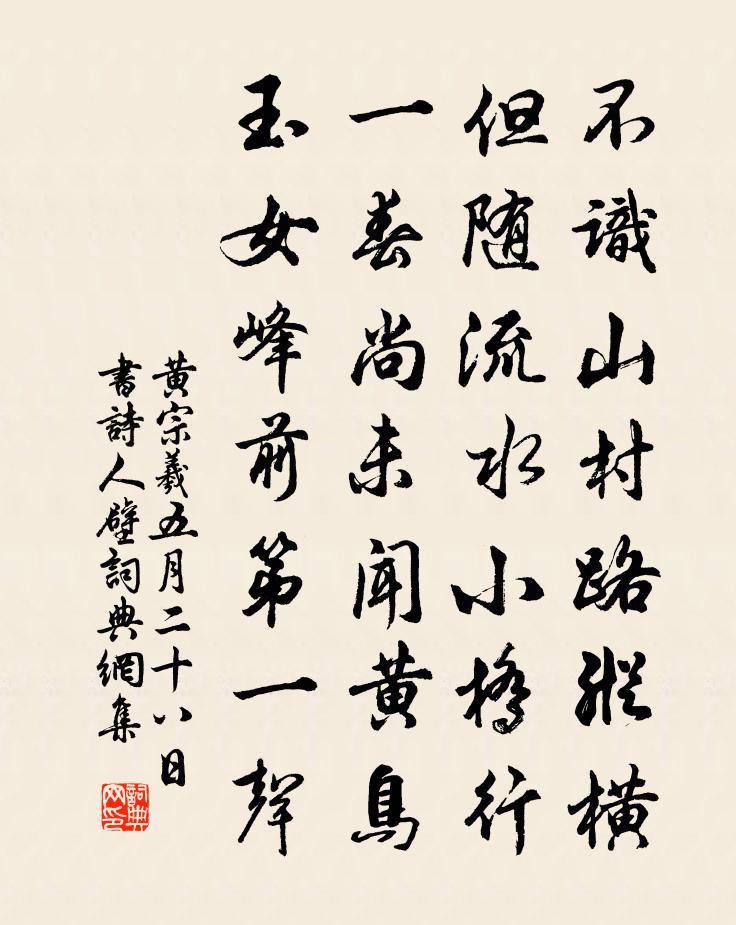 不識山村路縱横
但随流水小橋行
一春尚未聞黄鳥
玉女峰前第一聲
黄宗羲五月二十八日
書詩人壁詞典網集
詞典網印